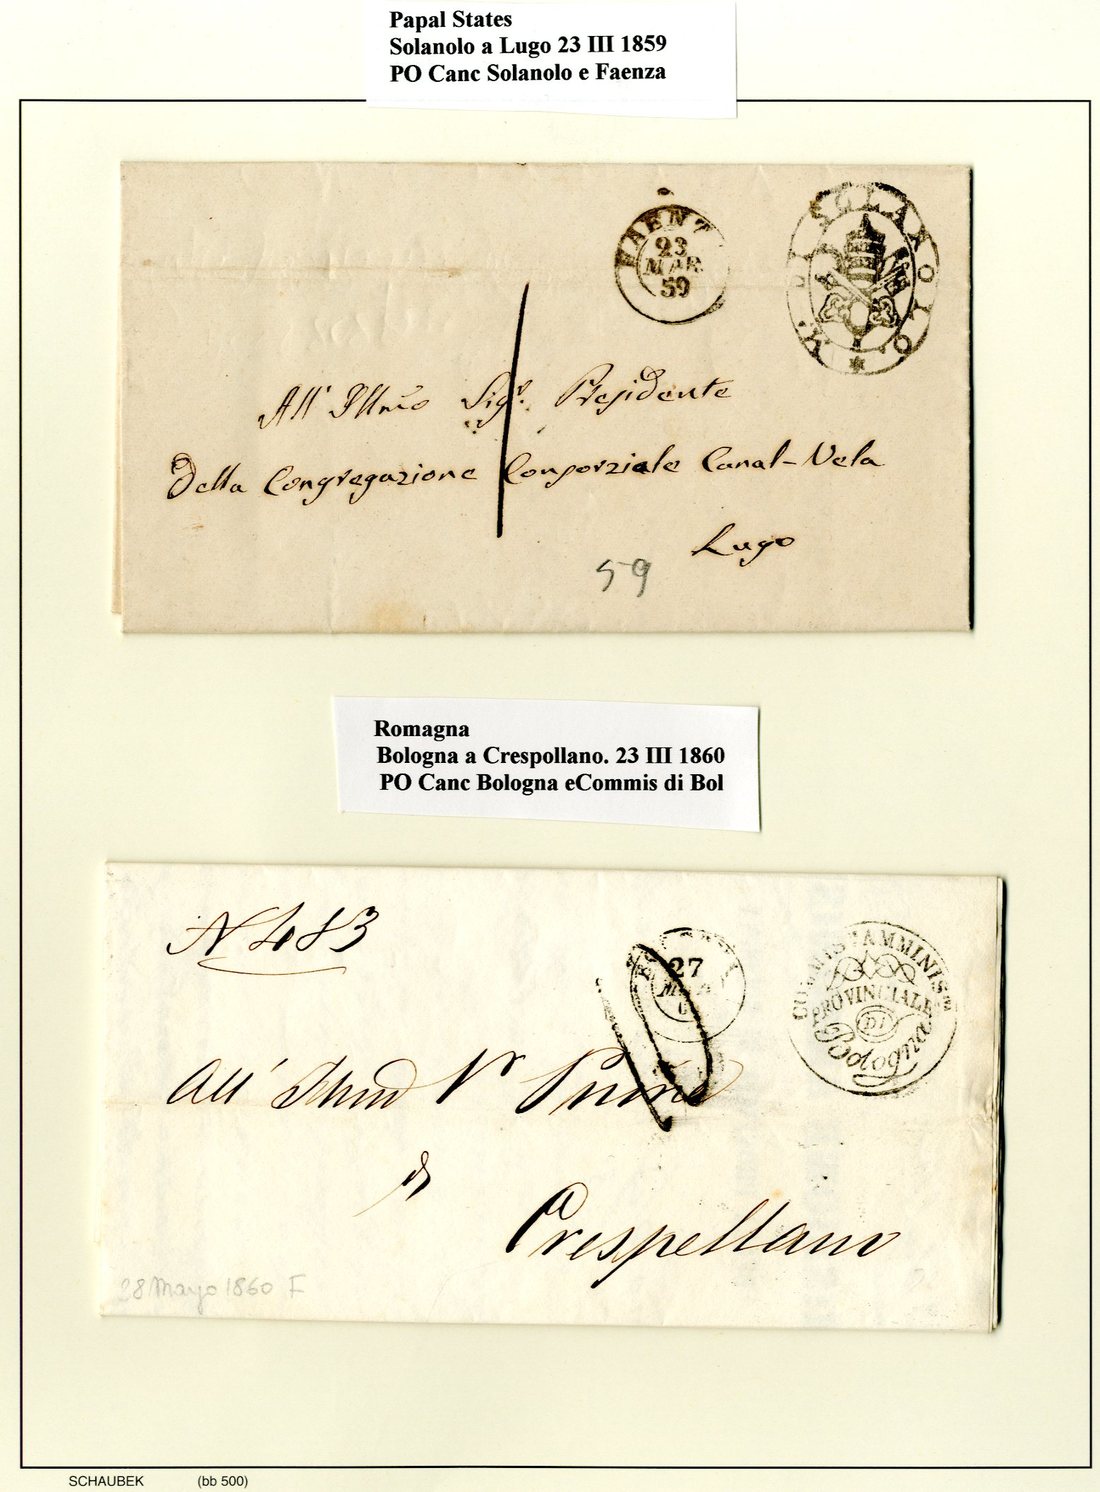 Papal States
Solanolo a Lugo 23 III 1859
PO Canc Solanolo e Faenza
FAENZ
23
MAR
59
M. DI SOLAROLO.
All' Illmo Sigr. Presidente
Della Congregazione Consorziale Canal-Vela
Lugo
59
Romagna
Bologna a Crespollano. 23 III 1860
PO Canc Bologna eCommis di Bol
N 483
27
COMMIS AMMINIS
PROVINCIALE
DI
Bologna
All'
di
Crespellano
28 Mayo 1860 F
SCHAUBEK (bb 500)